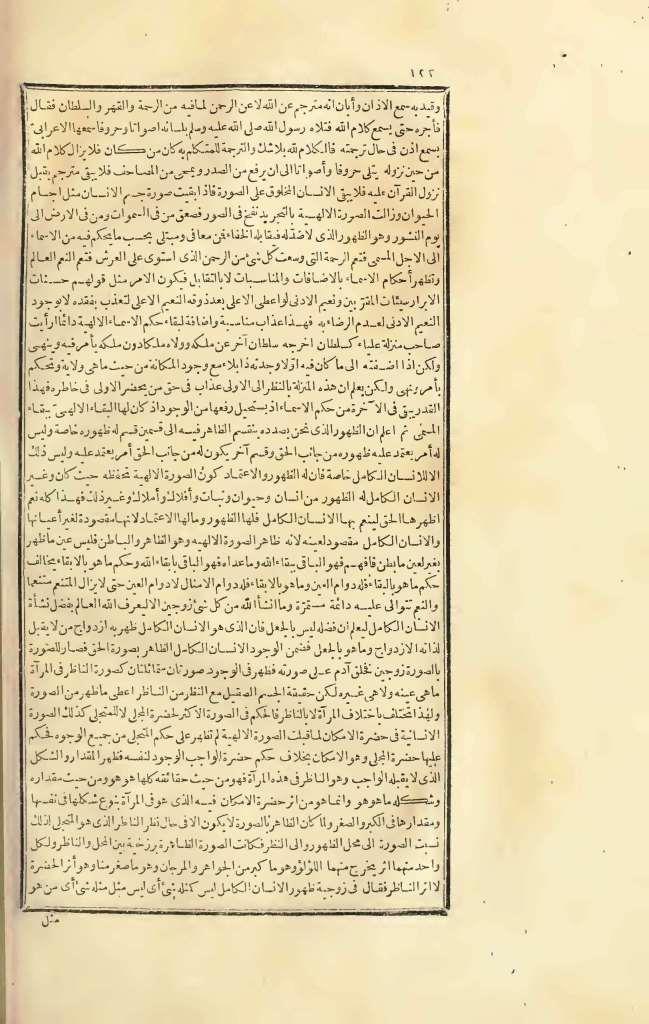 ١٢٢
وقيد به سمع الاذان وأبان انه مترجم عن الله لا عن الرحمن لما فيه من الرحمة والقهر والسلطان فقال
فأجره حتى يسمع كلام الله فتلاه رسول الله صلى الله عليه وسلم بلسانه اصواتا وحروفا سمعها الاعرابي
بسمع اذن في حال ترجمته فالكلام لله بلا شك والترجمة للمتكلم به كان من كان فلا يزال كلام الله
من حين نزوله يتلى حروفا وأصواتا الى ان يرفع من الصدور ويمحى من المصاحف فلا يبقى مترجم يقبل
نزول القرآن عليه فلا يبقى الانسان المخلوق على الصورة فاذا بقيت صورة جسم الانسان مثل اجسام
الحيوان وزالت الصورة الالهية بالتجريد نفخ في الصور فصعق من في السموات ومن في الارض الى
يوم النشور وهو الظهور الذي لا ضد له فيقابله الخفاء فمن معافى ومبتلى بحسب ما يحكم فيه من الاسماء
الى الاجل المسمى فتعم الرحمة التي وسعت كل شئ من الرحمن الذي استوى على العرش فتعم النعم العالم
وتظهر أحكام الاسماء بالاضافات والمناسبات لا بالتقابل فيكون الامر مثل قولهم حسنات
الابرار سيئات المقربين ونعيم الادنى لو اعطى الاعلى بعد ذوقه النعيم الاعلى لتعذب بفقده لا بوجود
النعيم الادنى لعدم الرضاء به فهذا عذاب مناسبة واضافة لبقاء حكم الاسماء الالهية دائما أرأيت
صاحب منزلة علياء كسلطان اخرجه سلطان آخر عن ملكه وولاه ملكا دون ملكه يأمر فيه وينهى
ولكن اذا اضفته الى ما كان فيه اولا وجدته ذا بلاء مع وجود المكانة من حيث ما هي ولاية وتحكم
بأمر ونهى ولكن يعلم ان هذه المنزلة بالنظر الى الاولى عذاب في حق من يحضر الاولى في خاطره فهذا
القدر بقى في الآخرة من حكم الاسماء اذ يستحيل رفعها من الوجود اذ كان لها البقاء الالهي ببقاء
المسمى ثم اعلم ان الظهور الذي نحن بصدده ينقسم الظاهر فيه الى قسمين قسم له ظهوره خاصة وليس
له أمر يعتمد عليه ظهوره من جانب الحق وقسم آخر يكون له من جانب الحق أمر يعتمد عليه وليس ذلك
الا للانسان الكامل خاصة فان له الظهور والاعتماد كون الصورة الالهية تحفظه حيث كان وغير
الانسان الكامل له الظهور من انسان وحيوان ونبات وأفلاك وأملاك وغير ذلك فهذا كله نعم
اظهرها الحق لينعم بها الانسان الكامل فلها الظهور وما لها الاعتماد لانها مقصودة لغير أعيانها
والانسان الكامل مقصود لعينه لانه ظاهر الصورة الالهيه وهو الظاهر والباطن فليس عين ما ظهر
بغير لعين ما بطن فافهم فهو الباقي ببقاء الله وما عداه فهو الباقي بابقاء الله وحكم ما هو بالابقاء يخالف
حكم ما هو بالبقاء فله دوام العين وما هو بالابقاء فله دوام الامثال لا دوام العين حتى لا يزال المتنعم متنعما
والنعيم تتوالى عليه دائمة مستمرة وما انشأ الله من كل شئ زوجين الا ليعرف الله العالم بفضل نشأة
الانسان الكامل ليعلم ان فضله ليس بالجعل فان الذي هو الانسان الكامل ظهر به ازدواج من لا يقبل
لذاته الازدواج وما هو بالجعل فضمن الوجود الانسان الكامل الظاهر بصورة الحق فصار للصورة
بالصورة زوجين فخلق آدم على صورته فظهر في الوجود صورتان متماثلتان كصورة الناظر في المرآة
ما هي عينه ولا هي غيره لكن حقيقة الجسم الصقيل مع النظر من الناظر اعطى ما ظهر من الصورة
ولهذا تختلف باختلاف المرآة لا بالناظر فالحكم في الصورة الاكثر لحضرة المجلى لا للمتجلى كذلك الصورة
الانسانية في حضرة الامكان لما قبلت الصورة الالهية لم تظهر على حكم المتجلى من جميع الوجوه فحكم
عليها حضرة المجلى وهو الامكان بخلاف حكم حضرة الواجب الوجود لنفسه فظهر المقدار والشكل
الذي لا يقبله الواجب وهو الناظر في هذه المرآة فهو من حيث حقائقه كلها هو هو ومن حيث مقداره
وشكله ما هو هو وانما هو من اثر حضرة الامكان فيه الذي هو في المرآة بنوع شكلها في نفسها
ومقدارها في الكبر والصغر ولما كان الظاهر بالصورة لا يكون الا في حال نظر الناظر الذي هو المتجلى لذلك
نسبت الصورة الى محل الظهور والى النظر فكانت الصورة الظاهرة برزخية بين المحل والناظر ولكل
واحد منهما اثر يخرج منهما اللؤلؤ وهو ما كبر من الجواهر والمرجان وهو ما صغر منها وهو أثر الحضرة
لا اثر الناظر فقال في زوجية ظهور الانسان الكامل ليس كمثله شئ أي ليس مثل مثله شئ أي من هو
مثل